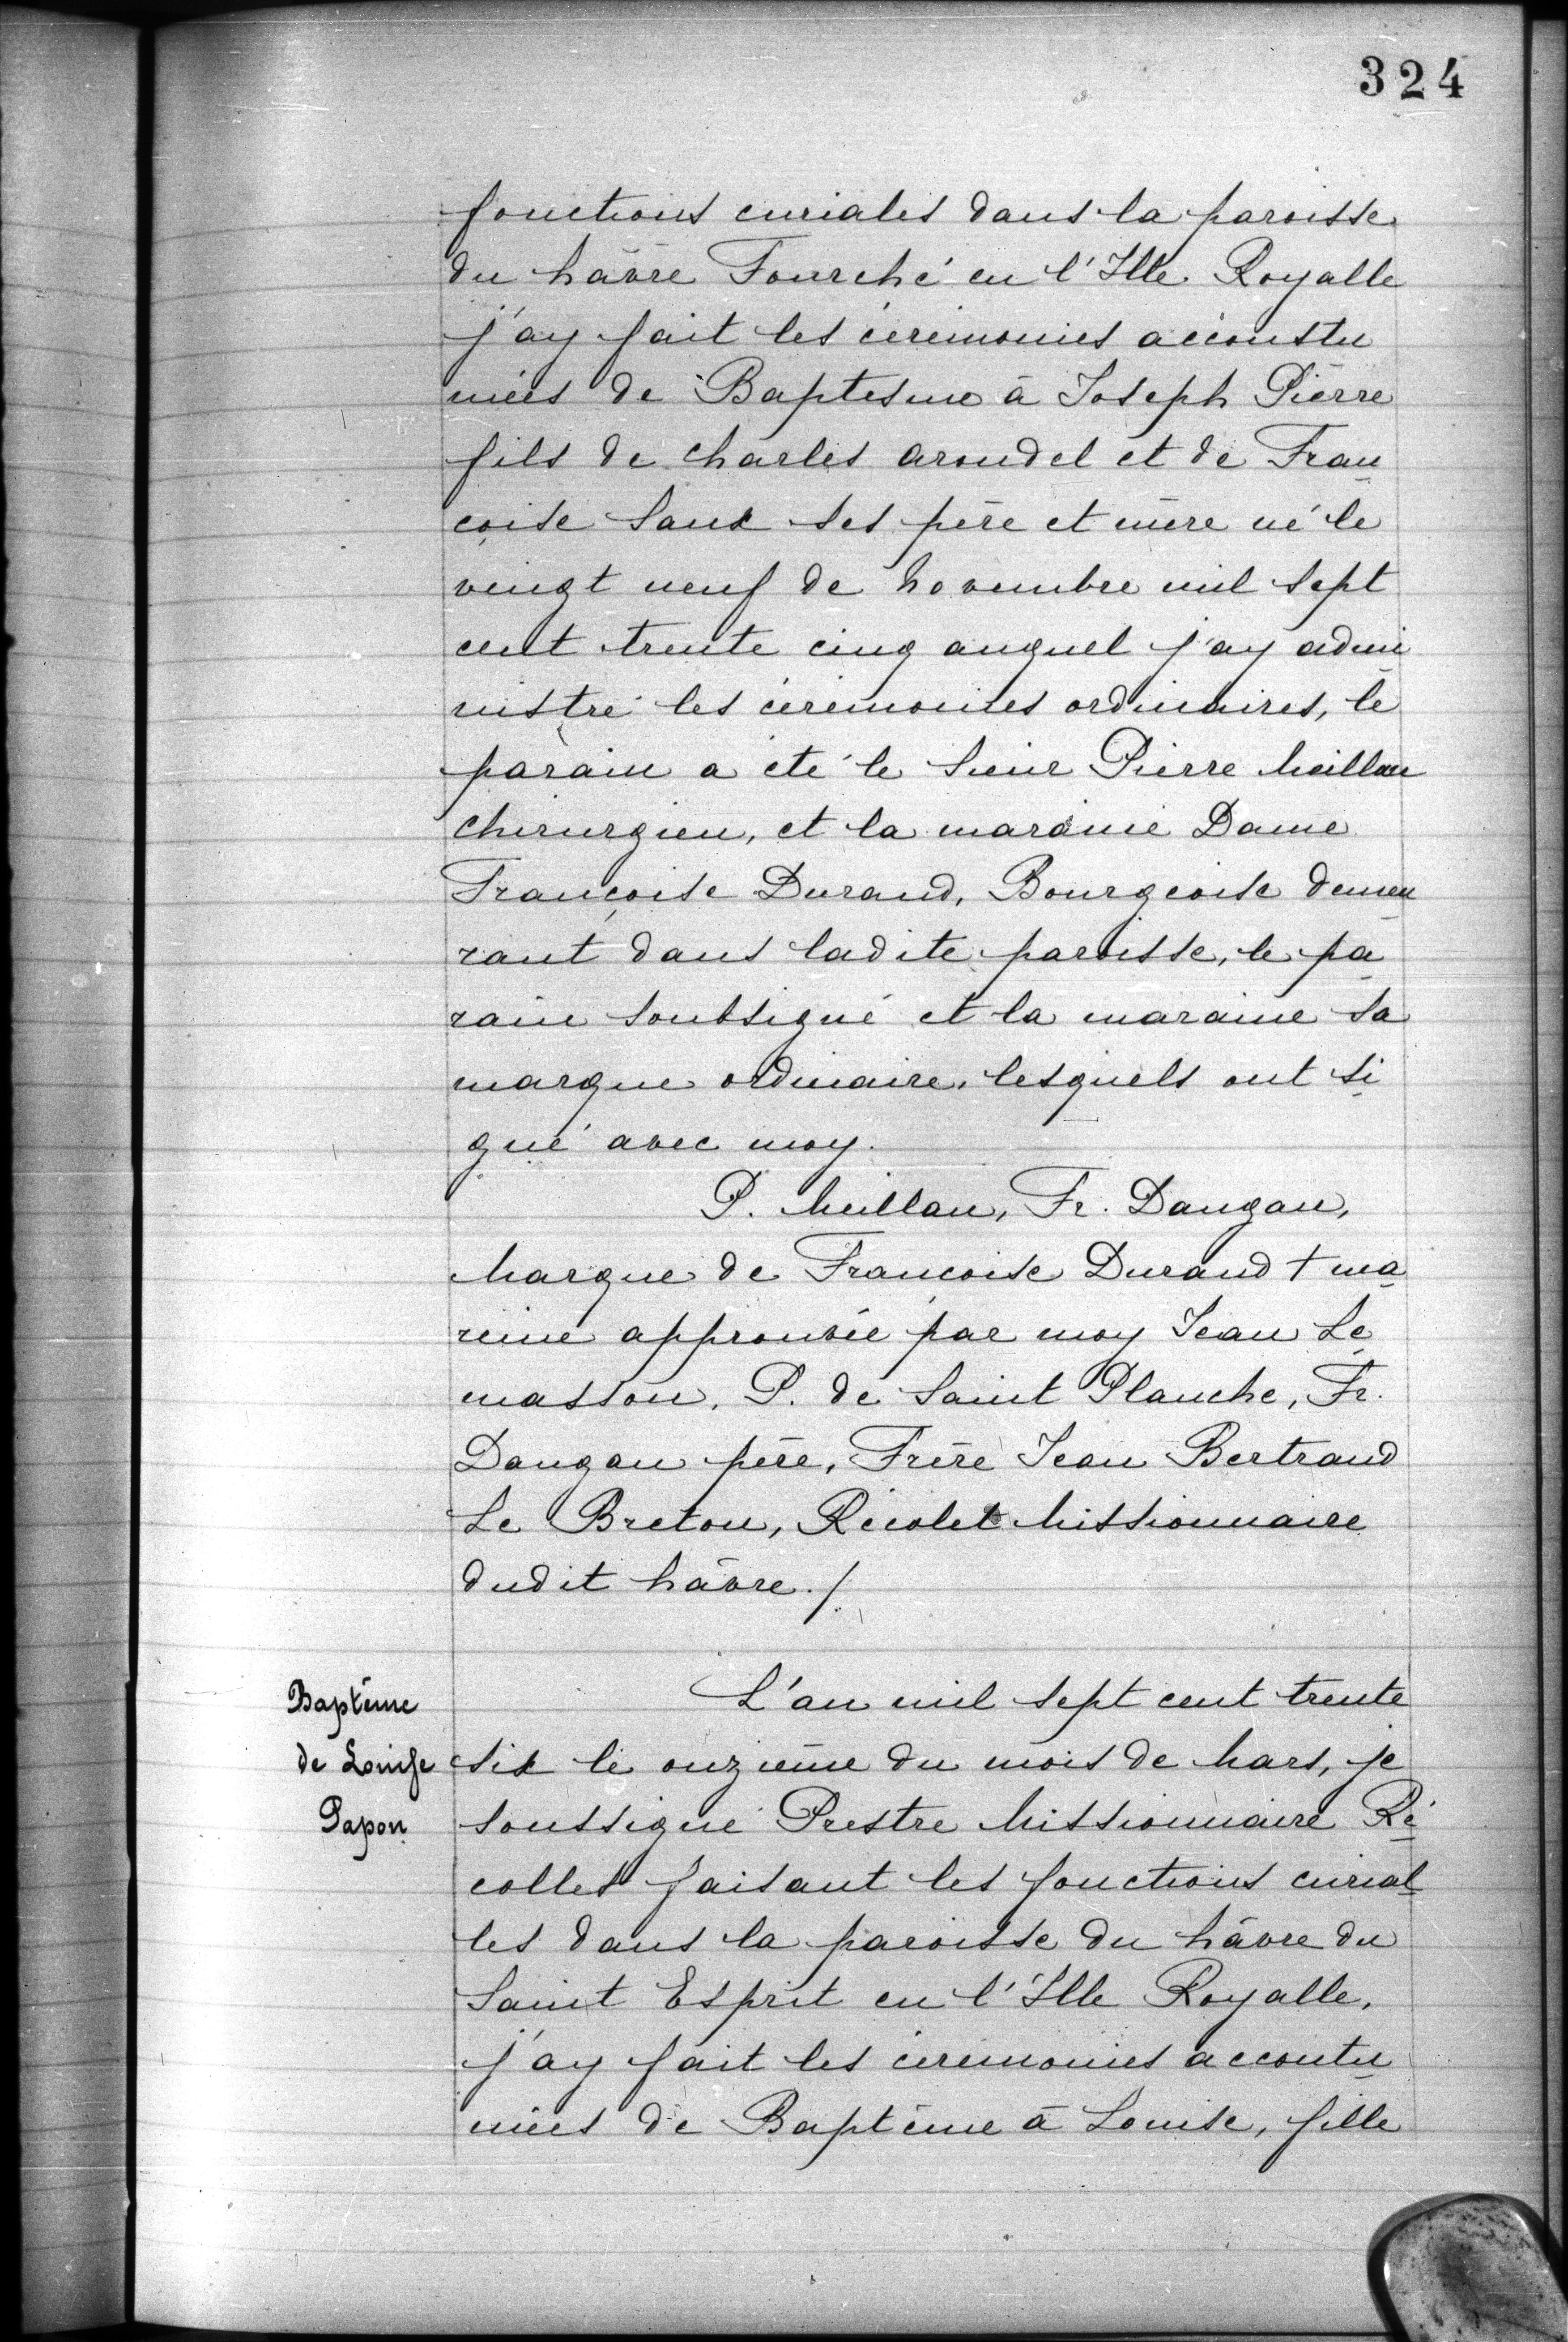 324
fonctions curiales dans la paroisse
du hâvre Fourché en l'Ille Royalle
j'ay fait les cérémonies accoustu
mées de Baptesme à Joseph Pierre
fils de Charles Arondel et de Fran
çoise Saux ses père et mère né le
vingt neuf de Novembre mil sept
cent trente cinq auquel j'ay admi
nistré les cérémonies ordinaires, le
parain a été le Sieur Pierre Meillan
chirurgien, et la maraine Dame
Françoise Durand, Bourgeoise demeu
rant dans ladite paroisse, le pa
rain soubsigné et la maraine sa
marque ordinaire, lesquels ont si
gné avec moy.
P. Meillan, Fr. Dangan,
Marque de Françoise Durand + ma
reine approuvée par moy Jean Le
masson, P. de Saint Planche, Fr.
Dangan père, Frère Jean Bertrand
Le Breton, Récolet Missionnaire
dudit hâvre ./.
Baptême
de Louise
Papon
L'an mil sept cent trente
six le onzième du mois de Mars, je
soussigné Prestre Missionnaire Ré
collet faisant les fonctions curial
les dans la paroisse du hâvre du
Saint Esprit en l'Ille Royalle,
j'ay fait les cérémonies accoutu
mées de Baptême à Louise, fille